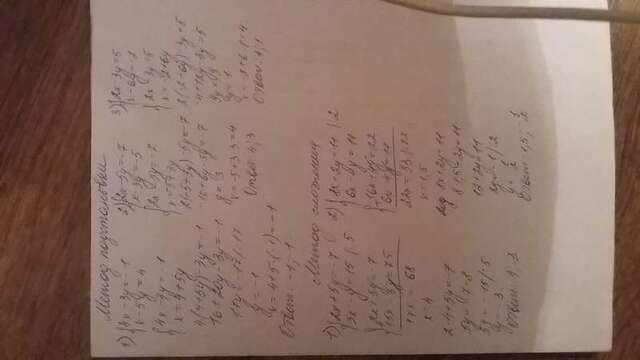 Метод подстановки
1) {4x - 3y = -1
x - 5y = 4
{4x - 3y = -1
x = 4 + 5y
4(4 + 5y) - 3y = -1
16 + 20y - 3y = -1
17y = -17 | :17
y = -1
x = 4 + 5·(-1) = -1
Ответ: -1; -1
2) {2x - 5y = -7
x - 3y = -5
{2x - 5y = -7
x = -5 + 3y
2(-5 + 3y) - 5y = -7
-10 + 6y - 5y = -7
y = 3
x = -5 + 3·3 = 4
Ответ: 4; 3
3) {2x - 3y = 5
x - 6y = -2
{2x - 3y = 5
x = -2 + 6y
2(-2 + 6y) - 3y = 5
-4 + 12y - 3y = 5
9y = 9
y = 1
Метод сложения
1) {2x + 5y = -7
3x - y = 15 | 5
{2x + 5y = -7
15x - 5y = 75
17x = 68
x = 4
2·4 + 5y = -7
5y = -7-8
5y = -15 | :5
y = -3
Ответ: 4; -3
2)
6x - 4y = 11
{16x + 4y = 22
6x - 4y = 11
22x = 33 | :22
x = 1,5
8x + 2y = 11
8·1,5 + 2y = 11
12 + 2y = 11
2y = -1 | :2